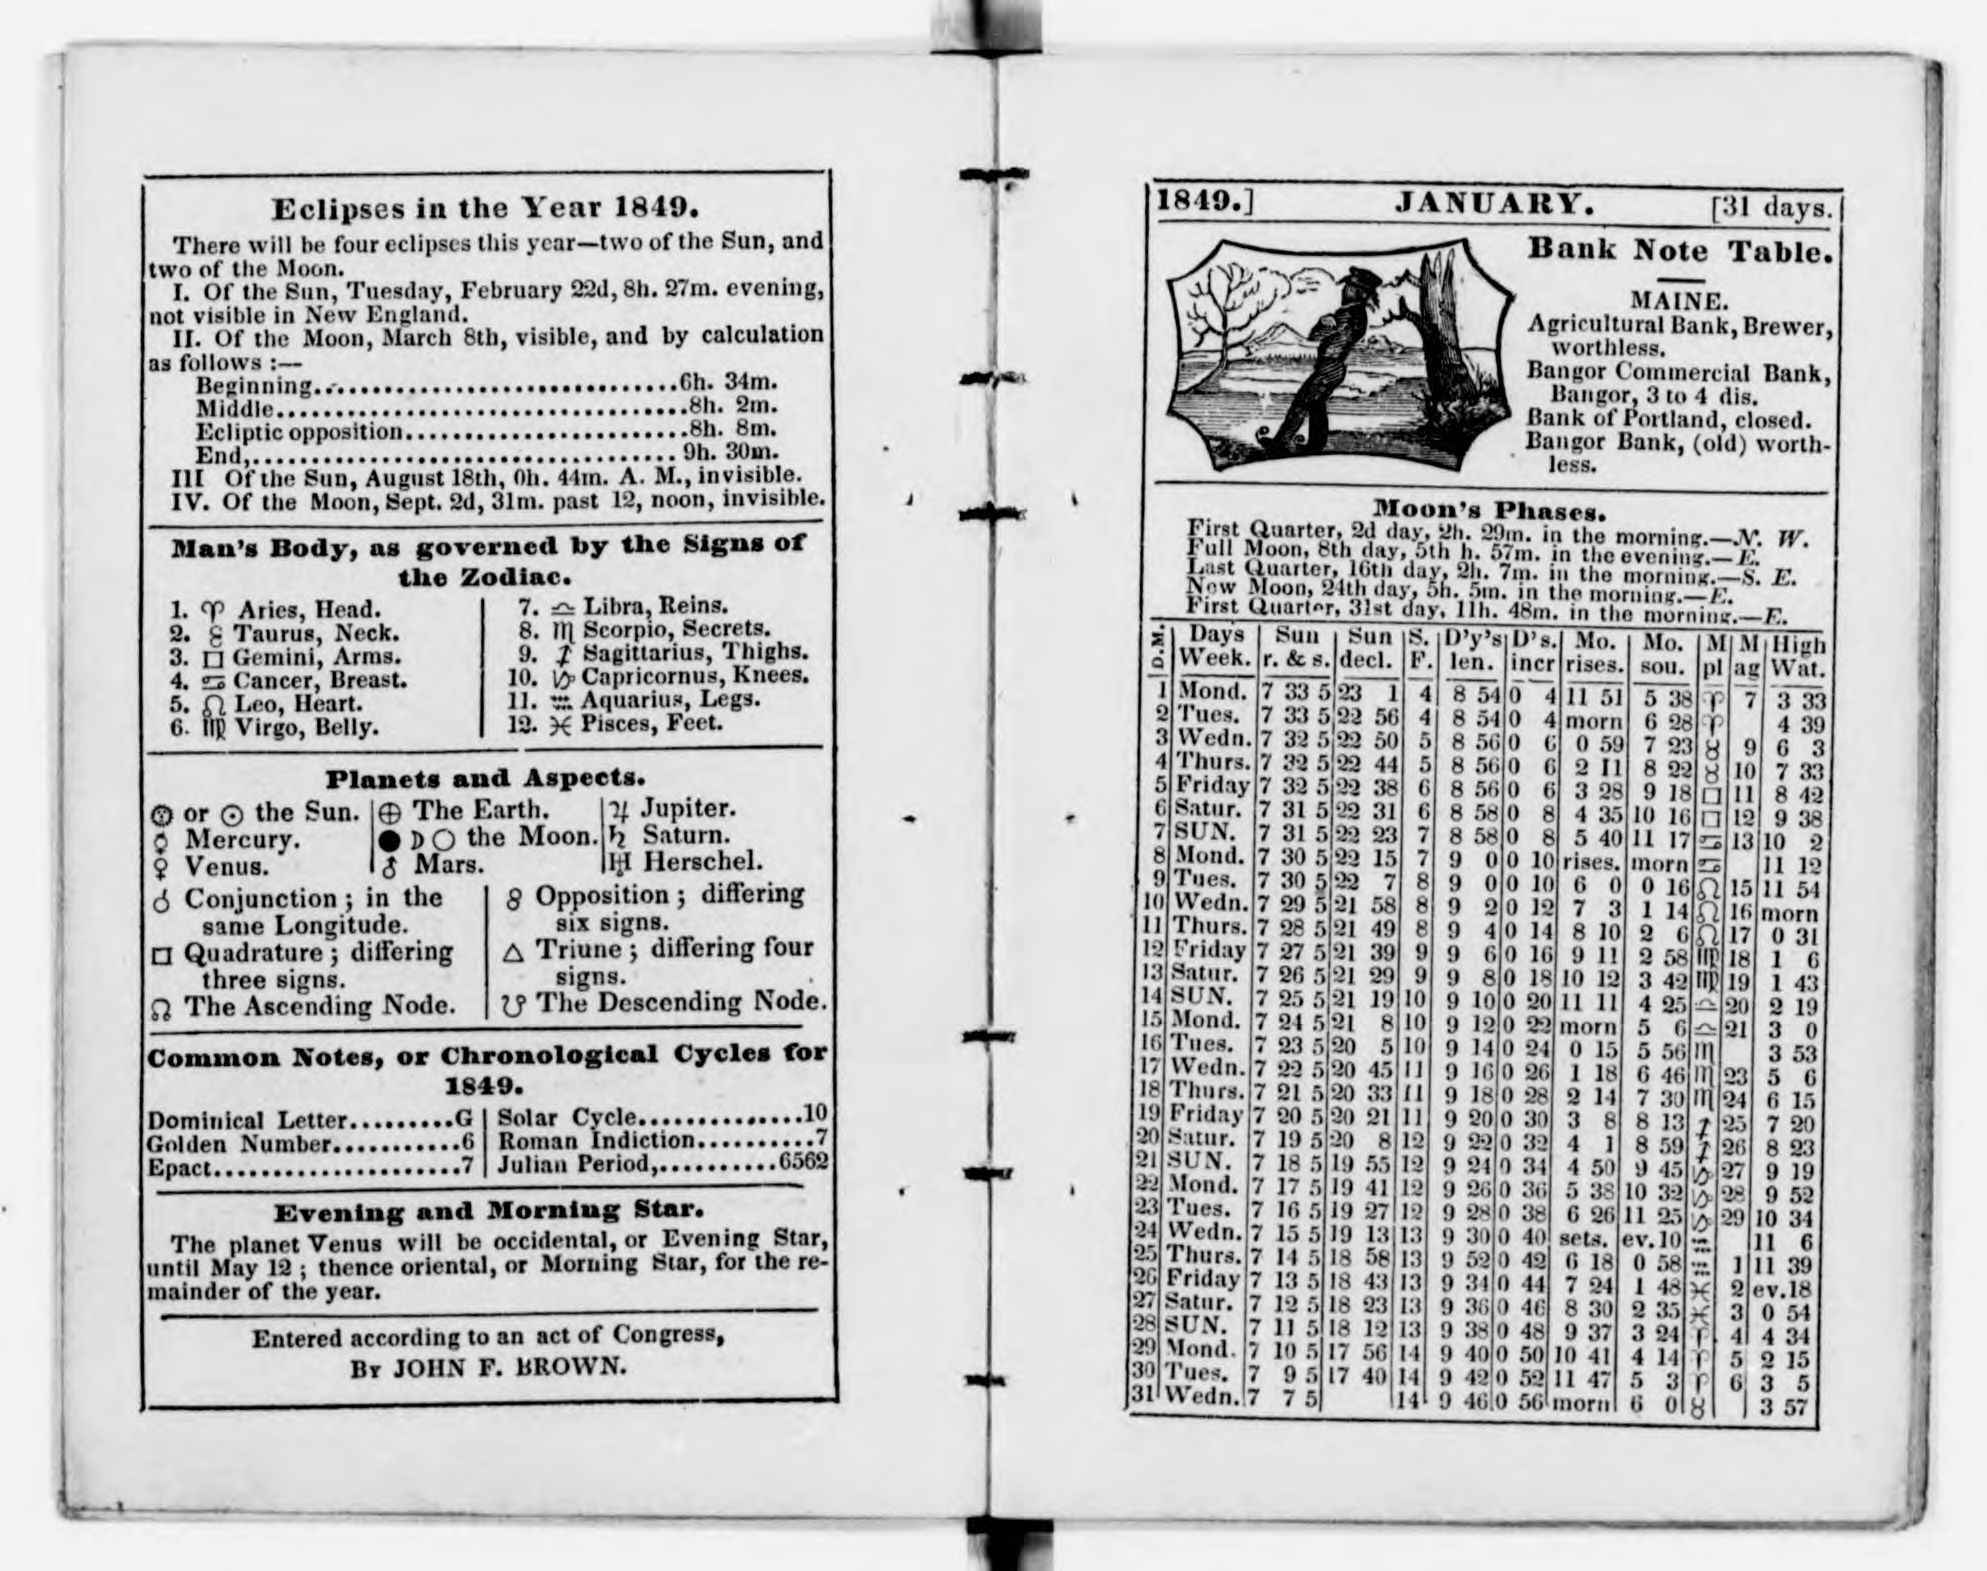 Eclipses in the Year 1849.
There will be four eclipses this year—two of the Sun, and
two of the Moon.
I. Of the Sun, Tuesday, February 22d, 8h. 27m. evening,
not visible in New England.
II. Of the Moon, March 8th, visible, and by calculation
as follows :—
Beginning..............................6h. 34m.
Middle..................................8h. 2m.
Ecliptic opposition........................8h. 8m.
End,.................................... 9h. 30m.
III Of the Sun, August 18th, 0h. 44m. A. M., invisible.
IV. Of the Moon, Sept. 2d, 31m. past 12, noon, invisible.
Man's Body, as governed by the Signs of
the Zodiac.
1. ♈ Aries, Head.
2. ♉ Taurus, Neck.
3. ♊ Gemini, Arms.
4. ♋ Cancer, Breast.
5. ♌ Leo, Heart.
6. ♍ Virgo, Belly.
7. ♎ Libra, Reins.
8. ♏ Scorpio, Secrets.
9. ♐ Sagittarius, Thighs.
10. ♑ Capricornus, Knees.
11. ♒ Aquarius, Legs.
12. ♓ Pisces, Feet.
Planets and Aspects.
☉ or ☉ the Sun. ⊕ The Earth. ♃ Jupiter.
☿ Mercury. ● ☽ ○ the Moon. ♄ Saturn.
♀ Venus. ♂ Mars. ♅ Herschel.
☌ Conjunction ; in the
same Longitude.
□ Quadrature ; differing
three signs.
☊ The Ascending Node.
☍ Opposition ; differing
six signs.
△ Triune ; differing four
signs.
☋ The Descending Node.
Common Notes, or Chronological Cycles for
1849.
Dominical Letter.........G | Solar Cycle...............10
Golden Number...........6 | Roman Indiction..........7
Epact......................7 | Julian Period,..........6562
Evening and Morning Star.
The planet Venus will be occidental, or Evening Star,
until May 12 ; thence oriental, or Morning Star, for the re-
mainder of the year.
Entered according to an act of Congress,
By JOHN F. BROWN.
1849.] JANUARY. [31 days.
Bank Note Table.
MAINE.
Agricultural Bank, Brewer,
worthless.
Bangor Commercial Bank,
Bangor, 3 to 4 dis.
Bank of Portland, closed.
Bangor Bank, (old) worth-
less.
Moon's Phases.
First Quarter, 2d day, 2h. 29m. in the morning.—N. W.
Full Moon, 8th day, 5th h. 57m. in the evening.—E.
Last Quarter, 16th day, 2h. 7m. in the morning.—S. E.
New Moon, 24th day, 5h. 5m. in the morning.—E.
First Quarter, 31st day, 11h. 48m. in the morning.—E.
D.M. | Days Week. | Sun r. & s. | Sun decl. | S. F. | D'y's len. | D's. incr | Mo. rises. | Mo. sou. | M pl | M ag | High Wat.
1 Mond. 7 33 5 23 1 4 8 54 0 4 11 51 5 38 ♈ 7 3 33
2 Tues. 7 33 5 22 56 4 8 54 0 4 morn 6 28 ♈ 4 39
3 Wedn. 7 32 5 22 50 5 8 56 0 6 0 59 7 23 ♉ 9 6 3
4 Thurs. 7 32 5 22 44 5 8 56 0 6 2 11 8 22 ♉ 10 7 33
5 Friday 7 32 5 22 38 6 8 56 0 6 3 28 9 18 ♊ 11 8 42
6 Satur. 7 31 5 22 31 6 8 58 0 8 4 35 10 16 ♊ 12 9 38
7 SUN. 7 31 5 22 23 7 8 58 0 8 5 40 11 17 ♋ 13 10 2
8 Mond. 7 30 5 22 15 7 9 0 0 10 rises. morn ♋ 11 12
9 Tues. 7 30 5 22 7 8 9 0 0 10 6 0 0 16 ♌ 15 11 54
10 Wedn. 7 29 5 21 58 8 9 2 0 12 7 3 1 14 ♌ 16 morn
11 Thurs. 7 28 5 21 49 8 9 4 0 14 8 10 2 6 ♌ 17 0 31
12 Friday 7 27 5 21 39 9 9 6 0 16 9 11 2 58 ♍ 18 1 6
13 Satur. 7 26 5 21 29 9 9 8 0 18 10 12 3 42 ♍ 19 1 43
14 SUN. 7 25 5 21 19 10 9 10 0 20 11 11 4 25 ♎ 20 2 19
15 Mond. 7 24 5 21 8 10 9 12 0 22 morn 5 6 ♎ 21 3 0
16 Tues. 7 23 5 20 5 10 9 14 0 24 0 15 5 56 ♏ 3 53
17 Wedn. 7 22 5 20 45 11 9 16 0 26 1 18 6 46 ♏ 23 5 6
18 Thurs. 7 21 5 20 33 11 9 18 0 28 2 14 7 30 ♏ 24 6 15
19 Friday 7 20 5 20 21 11 9 20 0 30 3 8 8 13 ♐ 25 7 20
20 Satur. 7 19 5 20 8 12 9 22 0 32 4 1 8 59 ♐ 26 8 23
21 SUN. 7 18 5 19 55 12 9 24 0 34 4 50 9 45 ♑ 27 9 19
22 Mond. 7 17 5 19 41 12 9 26 0 36 5 38 10 32 ♑ 28 9 52
23 Tues. 7 16 5 19 27 12 9 28 0 38 6 26 11 25 ♑ 29 10 34
24 Wedn. 7 15 5 19 13 13 9 30 0 40 sets. ev.10 ♒ 11 6
25 Thurs. 7 14 5 18 58 13 9 52 0 42 6 18 0 58 ♒ 1 11 39
26 Friday 7 13 5 18 43 13 9 34 0 44 7 24 1 48 ♓ 2 ev.18
27 Satur. 7 12 5 18 23 13 9 36 0 46 8 30 2 35 ♓ 3 0 54
28 SUN. 7 11 5 18 12 13 9 38 0 48 9 37 3 24 ♈ 4 4 34
29 Mond. 7 10 5 17 56 14 9 40 0 50 10 41 4 14 ♈ 5 2 15
30 Tues. 7 9 5 17 40 14 9 42 0 52 11 47 5 3 ♈ 6 3 5
31 Wedn. 7 7 5 14 9 46 0 56 morn 6 0 ♉ 3 57